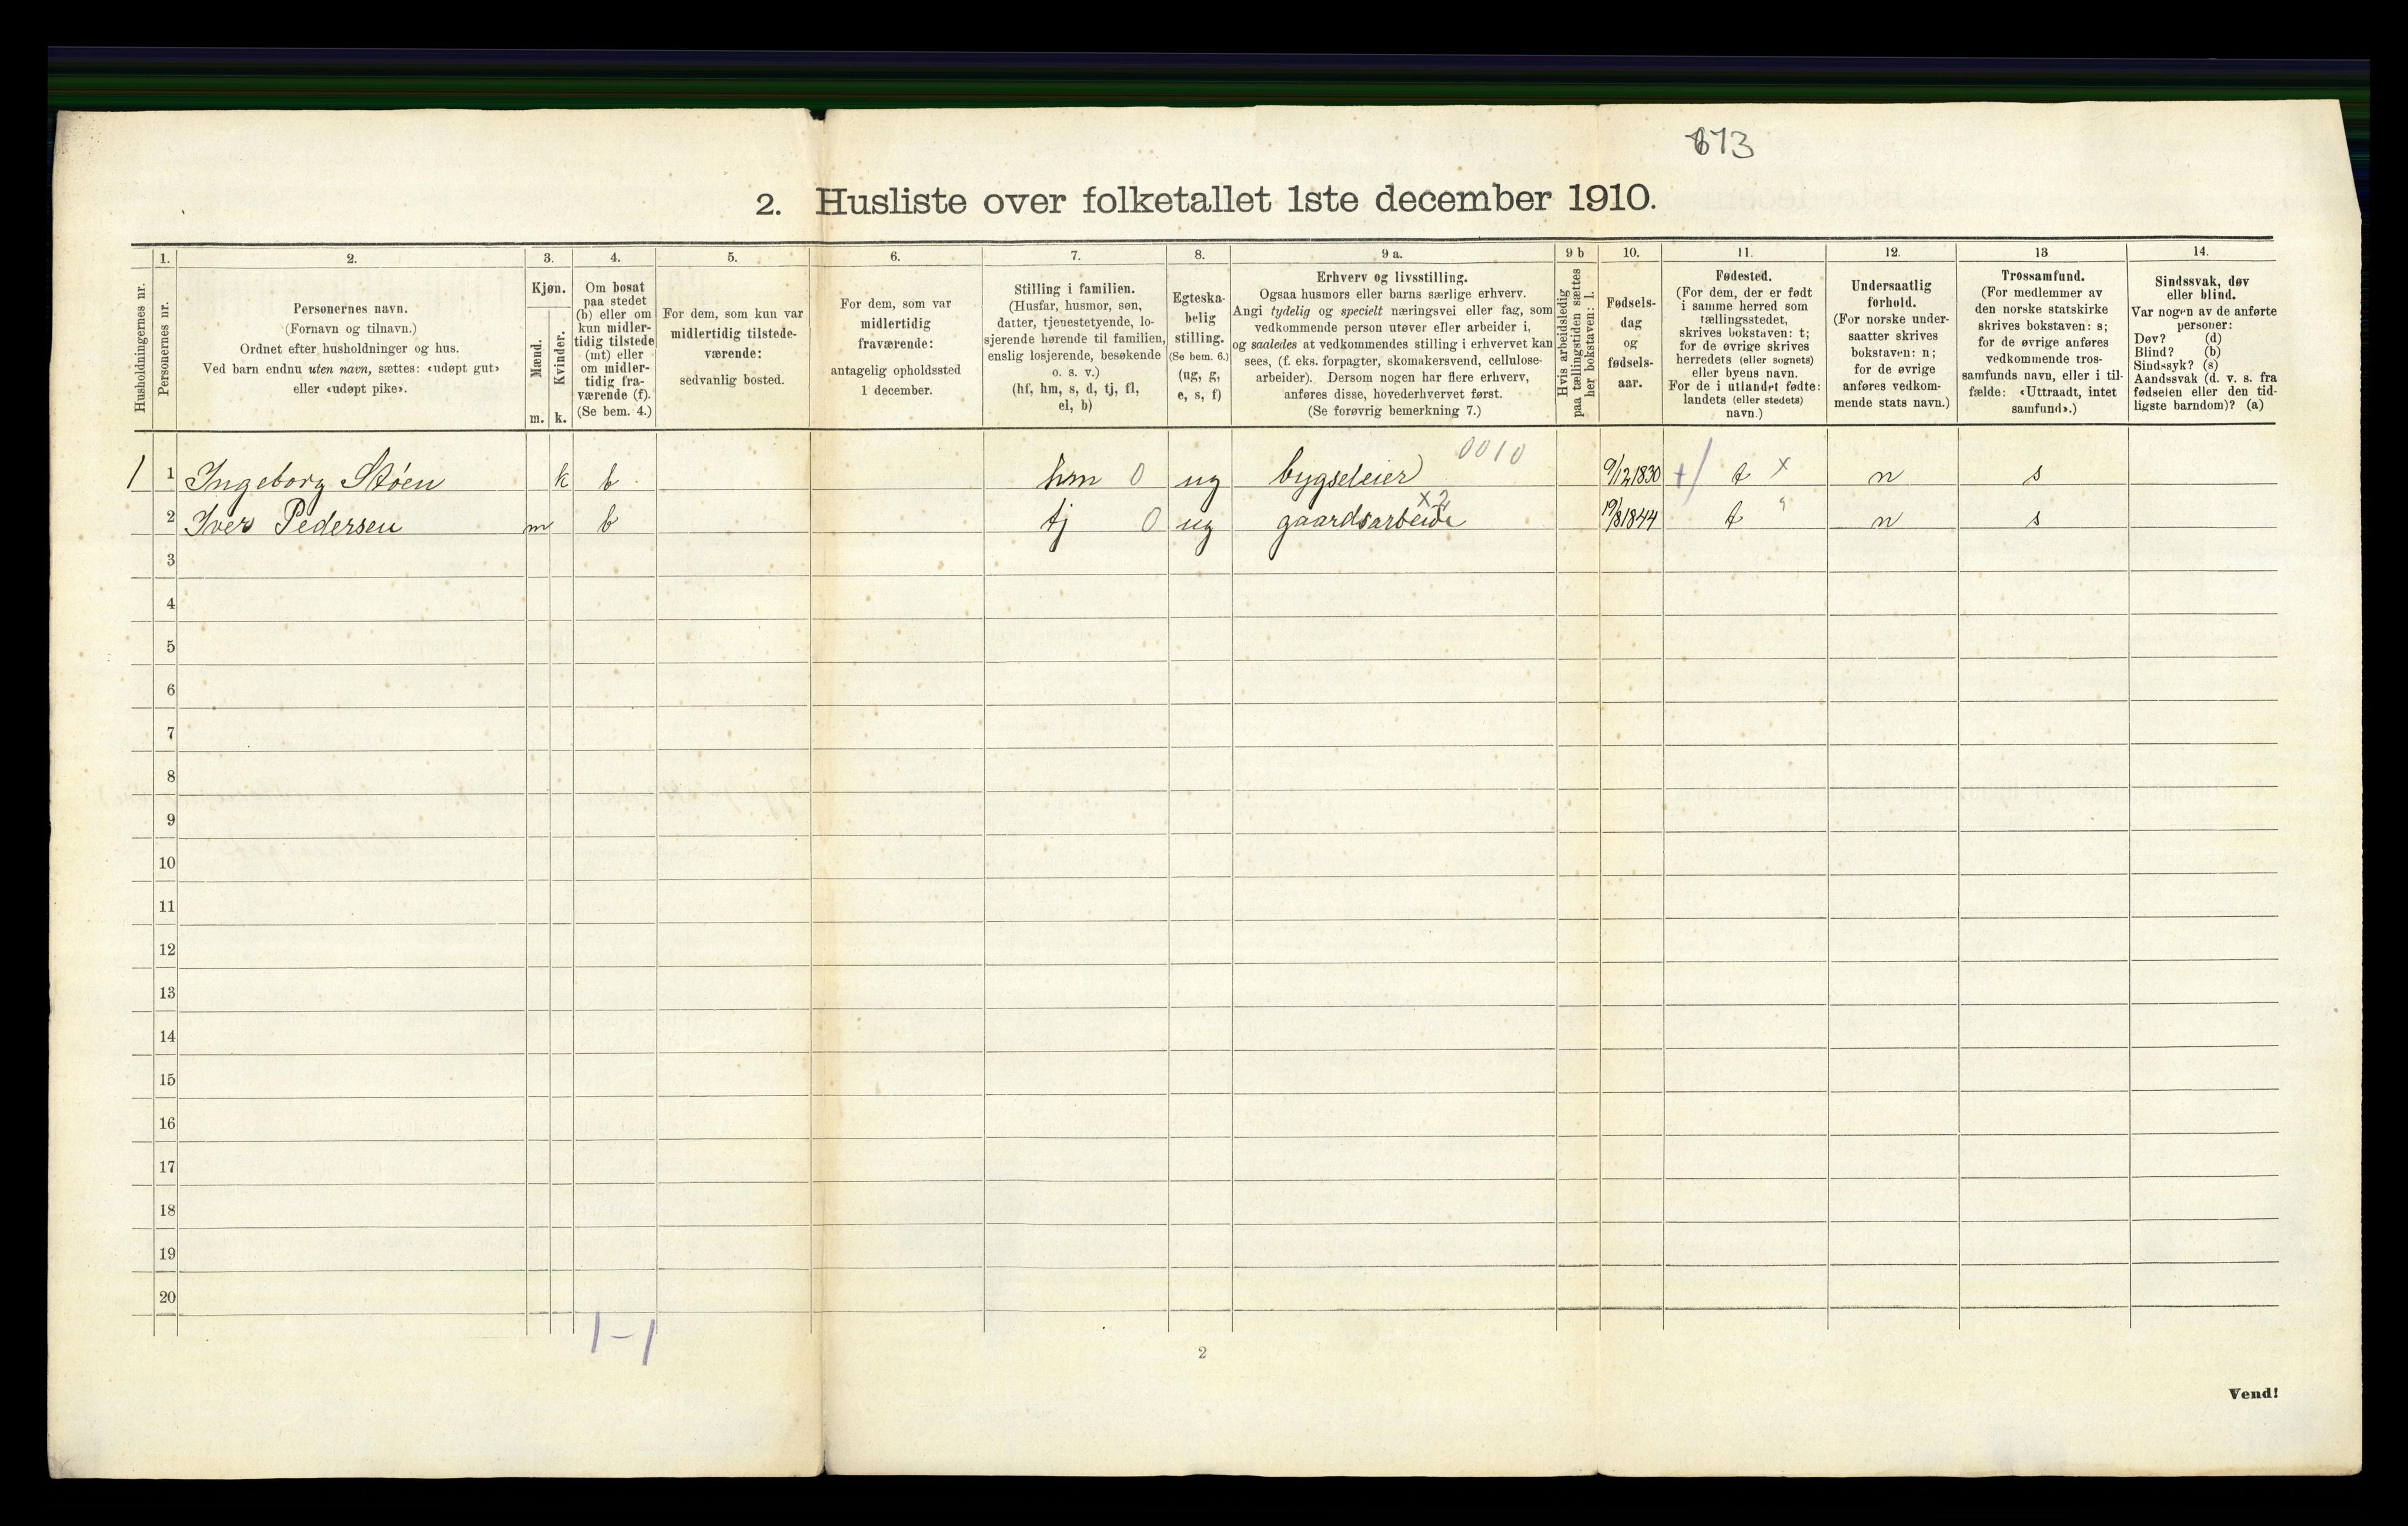 613
2. Husliste over folketallet 1ste december 1910.
Husholdningernes nr.
1.
Personernes nr.
2.
Personernes navn.
(Fornavn og tilnavn.)
Ordnet efter husholdninger og hus.
Ved barn endnu uten navn, sættes: «udøpt gut»
eller «udøpt pike».
3.
Kjøn.
Mænd.
m.
Kvinder.
k.
4.
Om bosat
paa stedet
(b) eller om
kun midler-
tidig tilstede
(mt) eller
om midler-
tidig fra-
værende (f).
(Se bem. 4.)
5.
For dem, som kun var
midlertidig tilstede-
værende:
sedvanlig bosted.
6.
For dem, som var
midlertidig
fraværende:
antagelig opholdssted
1 december.
7.
Stilling i familien.
(Husfar, husmor, søn,
datter, tjenestetyende, lo-
sjerende hørende til familien,
enslig losjerende, besøkende
o. s. v.)
(hf, hm, s, d, tj, fl,
el, b)
8.
Egteska-
belig
stilling.
(Se bem. 6.)
(ug, g,
e, s, f)
9 a.
Erhverv og livsstilling.
Ogsaa husmors eller barns særlige erhverv.
Angi tydelig og specielt næringsvei eller fag, som
vedkommende person utøver eller arbeider i,
og saaledes at vedkommendes stilling i erhvervet kan
sees, (f. eks. forpagter, skomakersvend, cellulose-
arbeider). Dersom nogen har flere erhverv,
anføres disse, hovederhvervet først.
(Se forøvrig bemerkning 7.)
9 b
Hvis arbeidsledig
paa tællingstiden sættes
her bokstaven: l.
10.
Fødsels-
dag
og
fødsels-
aar.
11.
Fødested.
(For dem, der er født
i samme herred som
tællingsstedet,
skrives bokstaven: t;
for de øvrige skrives
herredets (eller sognets)
eller byens navn.
For de i utlandet fødte:
landets (eller stedets)
navn.)
12.
Undersaatlig
forhold.
(For norske under-
saatter skrives
bokstaven: n;
for de øvrige
anføres vedkom-
mende stats navn.)
13
Trossamfund.
(For medlemmer av
den norske statskirke
skrives bokstaven: s;
for de øvrige anføres
vedkommende tros-
samfunds navn, eller i til-
fælde: «Uttraadt, intet
samfund».)
14.
Sindssvak, døv
eller blind.
Var nogen av de anførte
personer:
Døv? (d)
Blind? (b)
Sindssyk? (s)
Aandssvak (d. v. s. fra
fødselen eller den tid-
ligste barndom)? (a)
0010
1 1 Ingeborg Støen k b hm 0 ug bygseleier 9/12 1830 +/ t x n s
x2
2 Iver Pedersen m b tj 0 ug gaardsarbeide 19/8 1844 t " n s
3
4
5
6
7
8
9
10
11
12
13
14
15
16
17
18
19
20
1-1
2
Vend!